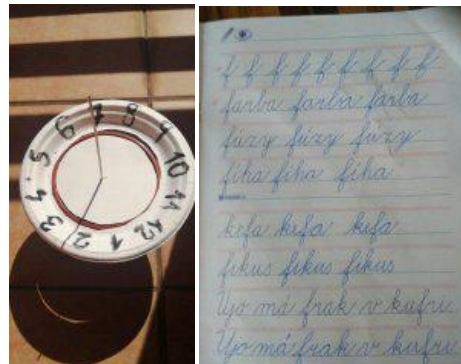 7 8 9 10 11 12 1 2 3 4 5 6
f f f f f f f f f
farba farba farba
fúzy fúzy fúzy
fiha fiha fiha
kefa kefa kefa
fikus fikus fikus
Ujo má frak v kufri.
Ujo má frak v kufri.